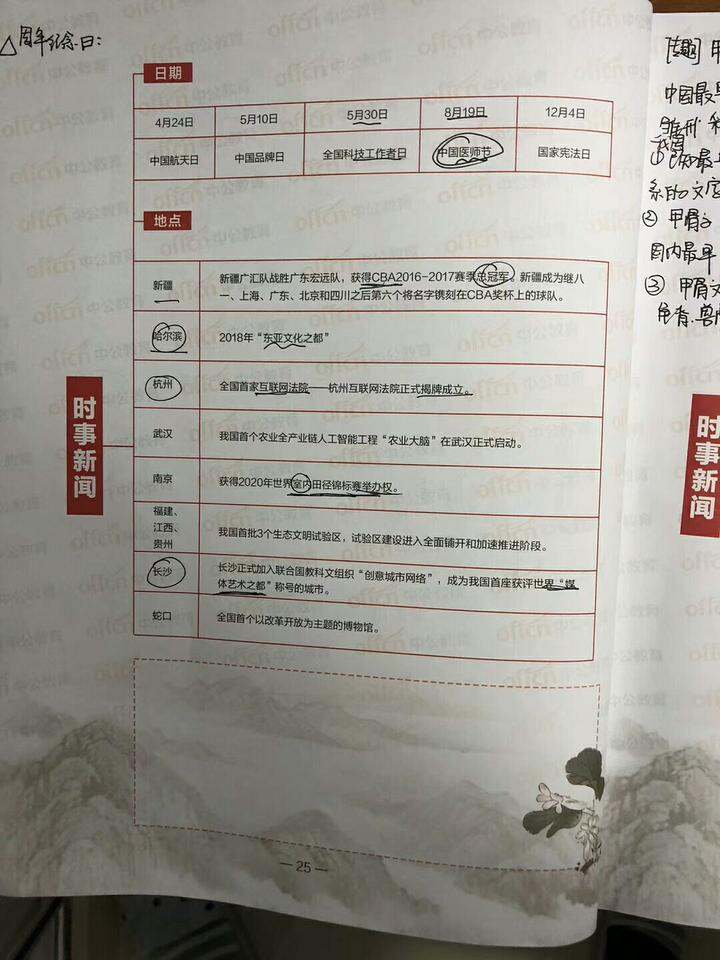 △周年纪念日：
日期
4月24日 5月10日 5月30日 8月19日 12月4日
中国航天日 中国品牌日 全国科技工作者日 中国医师节 国家宪法日
地点
新疆 新疆广汇队战胜广东宏远队，获得CBA2016-2017赛季总冠军。新疆成为继八
一、上海、广东、北京和四川之后第六个将名字镌刻在CBA奖杯上的球队。
哈尔滨 2018年“东亚文化之都”
杭州 全国首家互联网法院——杭州互联网法院正式揭牌成立。
武汉 我国首个农业全产业链人工智能工程“农业大脑”在武汉正式启动。
南京 获得2020年世界室内田径锦标赛举办权。
福建、
江西、
贵州
我国首批3个生态文明试验区，试验区建设进入全面铺开和加速推进阶段。
长沙 长沙正式加入联合国教科文组织“创意城市网络”，成为我国首座获评世界“媒
体艺术之都”称号的城市。
蛇口 全国首个以改革开放为主题的博物馆。
时事新闻
— 25 —
中国最早
②甲骨文
国内最早
③甲骨文
时事新闻